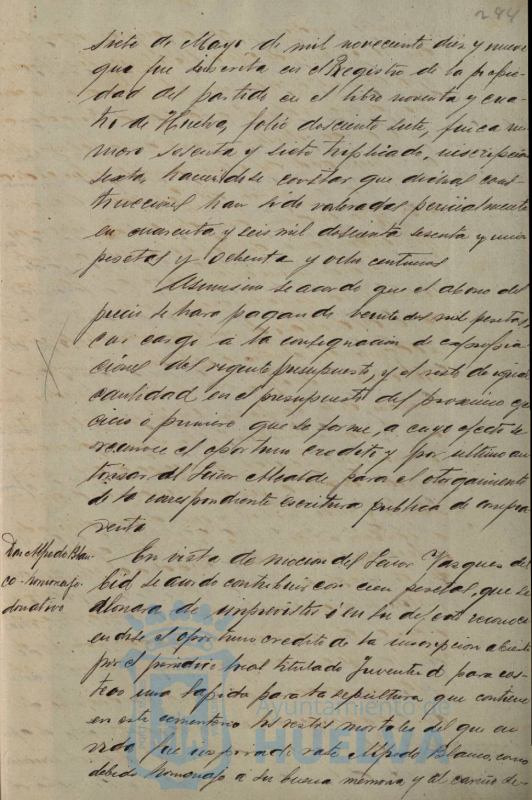 284
siete de Mayo de mil novecientos diez y nueve
que fue inscrita en el Registro de la propie
dad del partido en el libro noventa y cua
tro de Huelva, folio doscientos siete, finca nu
mero sesenta y siete triplicado, inscripcion
sexta, haciendose constar que dichas cons
trucciones han sido valoradas pericialmente
en cuarenta y seis mil doscientas sesenta y una
pesetas y ochenta y ocho centimos
Asimismo se acordó que el abono del
precio se hara pagando veinte dos mil pesetas
con cargo á la consignacion de expropia
ciones del vigente presupuesto, y el resto de igual
cantidad en el presupuesto del proximo ejer
cicio ó primero que se forme, a cuyo efecto se
reconoce el oportuno credito y por ultimo au
torizar al Señor Alcalde para el otorgamiento
de la correspondiente escritura publica de compra
venta
Don Alfredo Blan
co - homenaje.
donativo
En vista de mocion del Señor Vazquez del
Cid se acordo contribuir con cien pesetas, que se
abonara de imprevistos ó en su defecto reconoci
endose el oportuno credito de la inscripcion abierta
por el periodico local titulado Juventud para cos
tear una lapida para la sepultura que contiene
en este cementerio los restos mortales del que en
vida fue inspirado vate Alfredo Blanco, como
debido homenaje a su buena memoria y al cariño de-
Ayuntamiento de
HUELVA